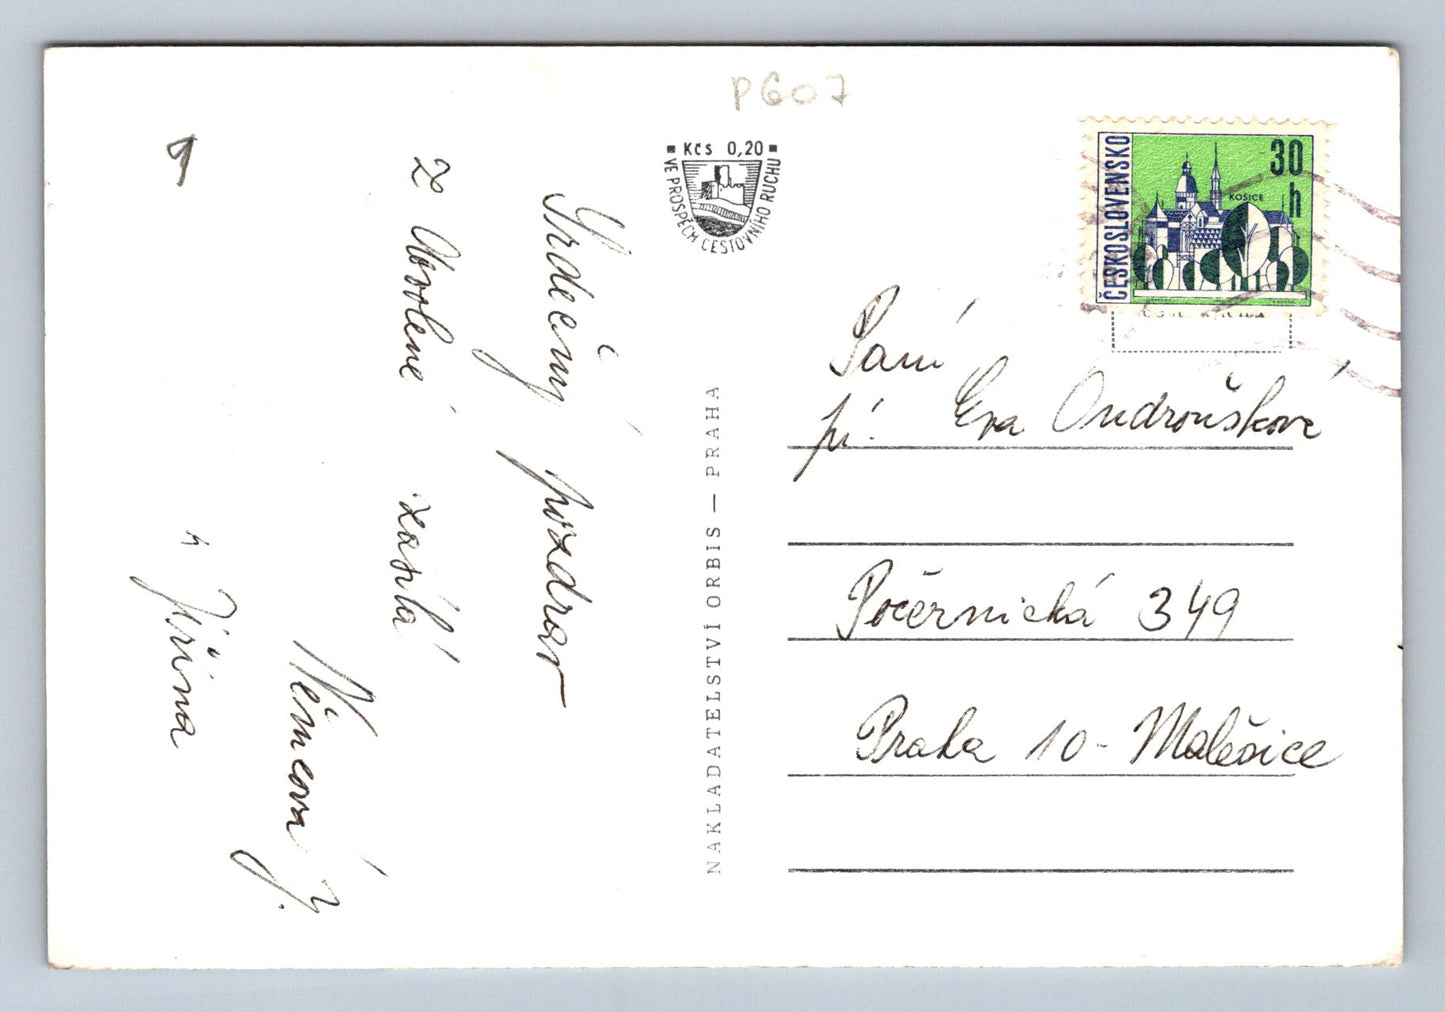 P607
Kčs 0,20
VE PROSPĚCH CESTOVNÍHO RUCHU
ČESKOSLOVENSKO
30
h
KOŠICE
Srdečný pozdrav
zasílá
Němcová J.
Jiřina
NAKLADATELSTVÍ ORBIS — PRAHA
Paní
pí. Eva Ondroušková
Počernická 349
Praha 10 - Malešice